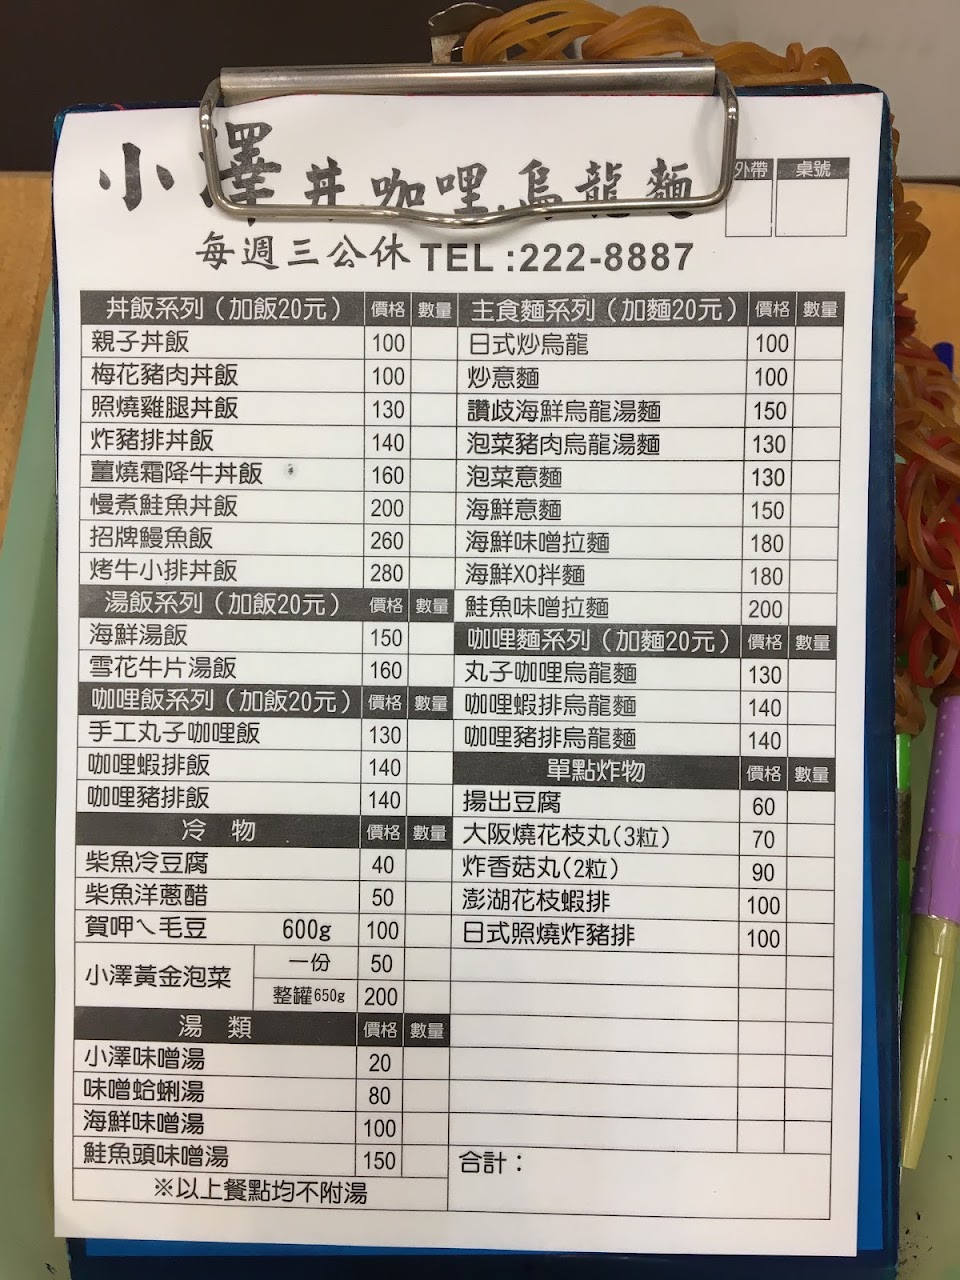 小澤 丼.咖哩.烏龍麵
外帶
桌號
每週三公休 TEL:222-8887
丼飯系列(加飯20元) 價格 數量
親子丼飯 100
梅花豬肉丼飯 100
照燒雞腿丼飯 130
炸豬排丼飯 140
薑燒霜降牛丼飯 160
慢煮鮭魚丼飯 200
招牌鰻魚飯 260
烤牛小排丼飯 280
湯飯系列(加飯20元) 價格 數量
海鮮湯飯 150
雪花牛片湯飯 160
咖哩飯系列(加飯20元) 價格 數量
手工丸子咖哩飯 130
咖哩蝦排飯 140
咖哩豬排飯 140
冷 物 價格 數量
柴魚冷豆腐 40
柴魚洋蔥醋 50
賀呷ㄟ毛豆 600g 100
小澤黃金泡菜 一份 50
整罐650g 200
湯 類 價格 數量
小澤味噌湯 20
味噌蛤蜊湯 80
海鮮味噌湯 100
鮭魚頭味噌湯 150
※以上餐點均不附湯
主食麵系列(加麵20元) 價格 數量
日式炒烏龍 100
炒意麵 100
讚歧海鮮烏龍湯麵 150
泡菜豬肉烏龍湯麵 130
泡菜意麵 130
海鮮意麵 150
海鮮味噌拉麵 180
海鮮XO拌麵 180
鮭魚味噌拉麵 200
咖哩麵系列(加麵20元) 價格 數量
丸子咖哩烏龍麵 130
咖哩蝦排烏龍麵 140
咖哩豬排烏龍麵 140
單點炸物 價格 數量
揚出豆腐 60
大阪燒花枝丸(3粒) 70
炸香菇丸(2粒) 90
澎湖花枝蝦排 100
日式照燒炸豬排 100
合計：